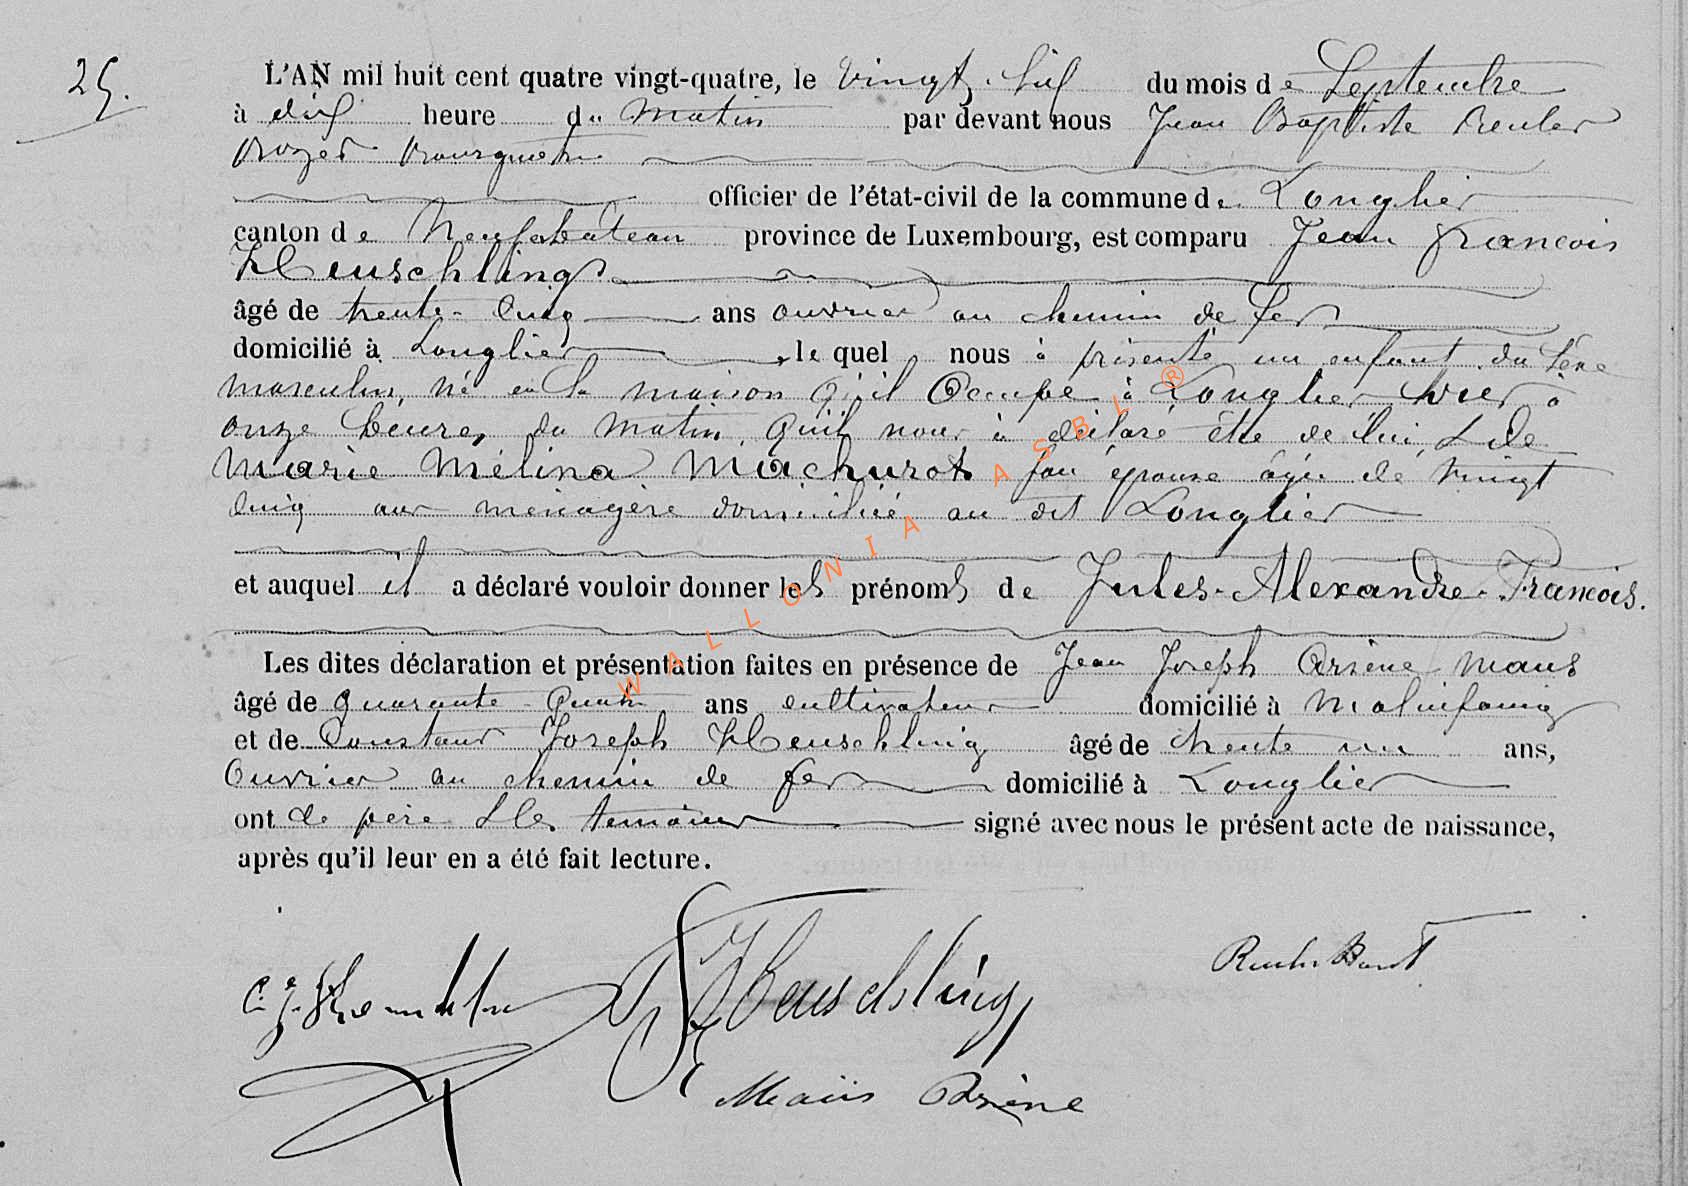 25.
L'AN mil huit cent quatre vingt-quatre, le vingt six du mois de Septembre
à dix heure du Matin par devant nous Jean Baptiste Reuler
Bourgmestre
officier de l'état-civil de la commune de Longlier
canton de Neufchâteau province de Luxembourg, est comparu Jean François
Heuschling
âgé de trente-cinq ans ouvrier au chemin de fer
domicilié à Longlier lequel nous à présenté un enfant du sexe
masculin, né en la maison qu'il Occupe à Longlier hier à
onze heures du Matin, qu'il nous à déclaré être de lui & de
Marie Mélina Machurot son épouse âgée de vingt
cinq ans ménagère domiciliée au dit Longlier
et auquel il a déclaré vouloir donner les prénoms de Jules-Alexandre-François.
Les dites déclaration et présentation faites en présence de Jean Joseph Arsène Maus
âgé de quarante-quatre ans cultivateur domicilié à Molinfaing
et de Constant Joseph Heuschling âgé de trente un ans,
Ouvrier au chemin de fer domicilié à Longlier
ont le père & les témoins signé avec nous le présent acte de naissance,
après qu'il leur en a été fait lecture.
Heuschling
C. J.
Maus Arsène
WALLONIA ASBL ®